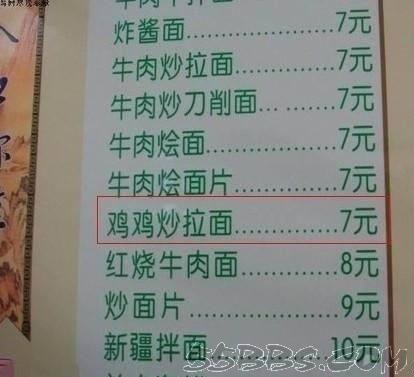 炸酱面............7元
牛肉炒拉面............7元
牛肉炒刀削面... ......7元
牛肉烩面............7元
牛肉烩面片............7元
鸡鸡炒拉面............7元
红烧牛肉面............8元
炒面片............9元
新疆拌面............10元
55BBS.COM